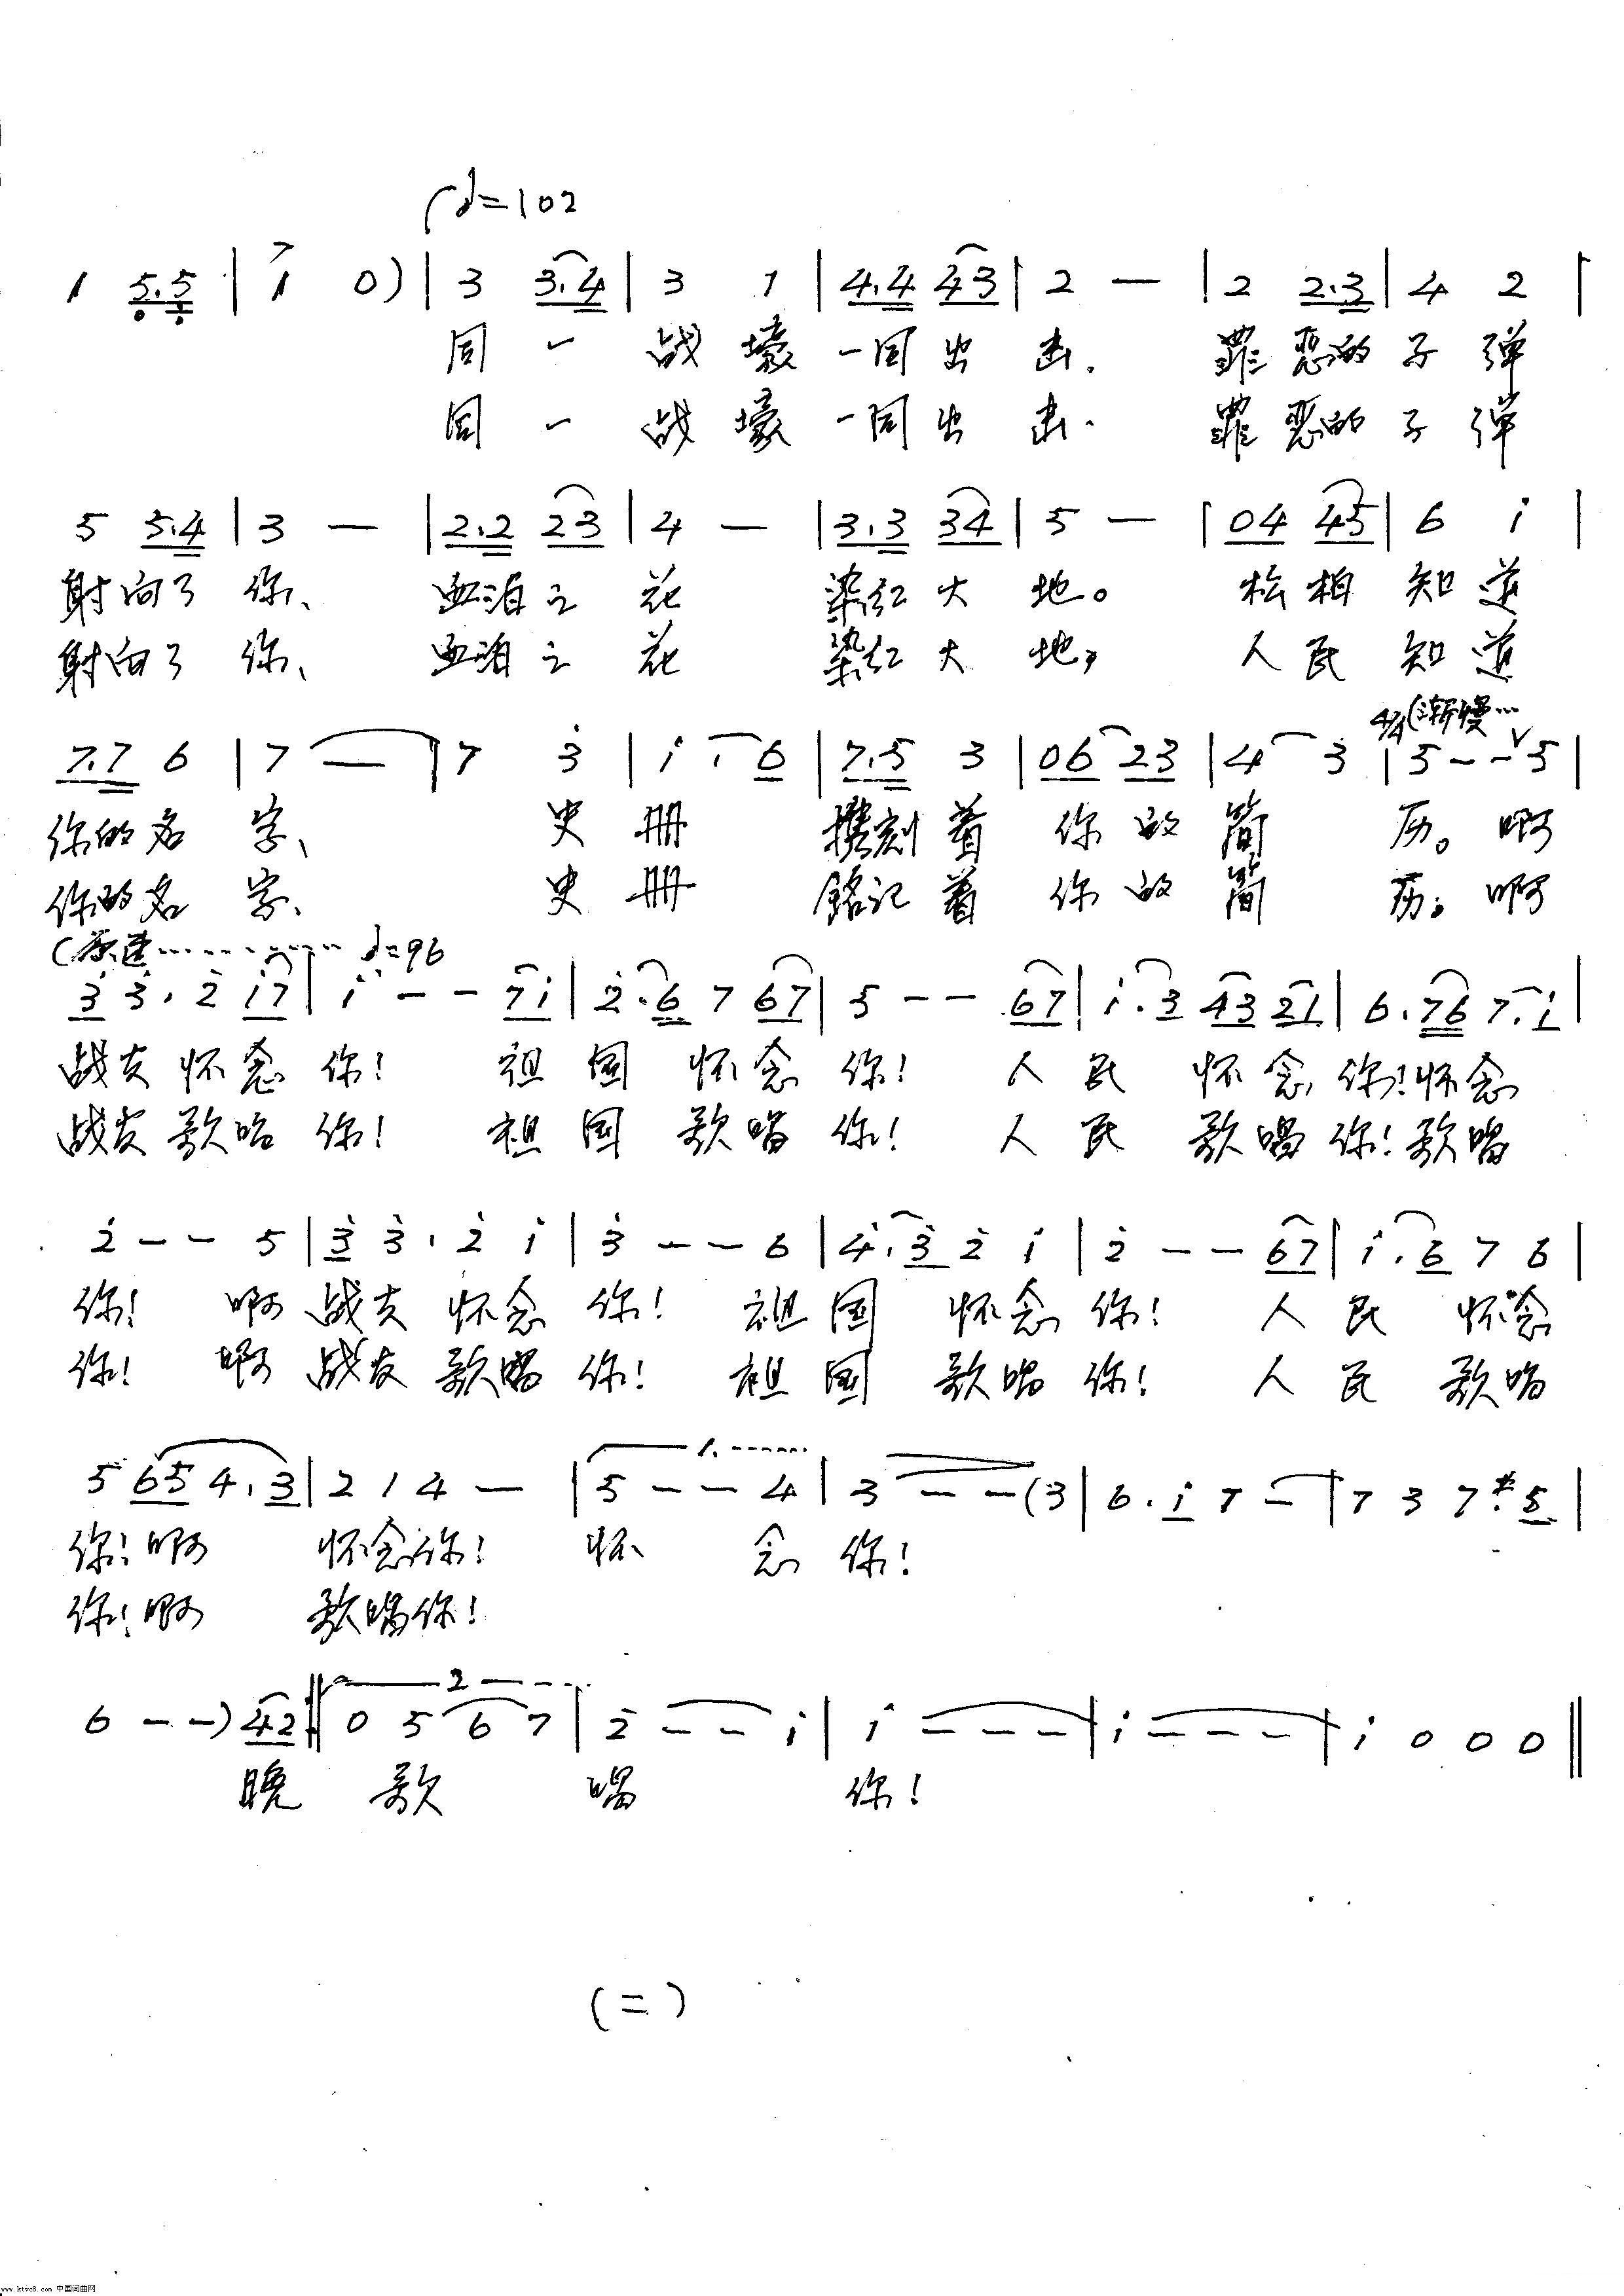 ♩=102
1 5.5 | 1 0) | 3 3.4 | 3 1 | 4.4 43 | 2 — | 2 2.3 | 4 2 |
同 一 战 壕 一同 出 击. 罪 恶的 子 弹
同 一 战 壕 一同 出 击. 罪 恶的 子 弹
5 5.4 | 3 — | 2.2 23 | 4 — | 3.3 34 | 5 — | 04 45 | 6 i |
射向了 你、 血泊之 花 染红大 地。 松柏 知道
射向了 你、 血泊之 花 染红大 地, 人民 知道
4/4 (渐慢…
7.7 6 | 7 — | 7 3 | i . 6 | 7.5 3 | 06 23 | 4 3 | 5 - - v 5 |
你的名 字、 史 册 刻着 你的简 历。啊
你的名 字、 史 册 铭记着 你的简 历。啊
(原速………… ♩=96
3 3 . 2 i7 | i - - 7i | 2.6 7 67 | 5 - - 67 | i.3 43 21 | 6.76 7.i |
战友怀念你! 祖国怀念你! 人民怀念你!怀念
战友歌唱你! 祖国歌唱你! 人民歌唱你!歌唱
2 - - 5 | 3 3 . 2 i | 3 - - 6 | 4.3 2 i | 2 - - 67 | i.6 7 6 |
你! 啊战友怀念你! 祖国怀念你! 人民怀念
你! 啊战友歌唱你! 祖国歌唱你! 人民歌唱
1.
5 65 4.3 | 2 1 4 — | 5 - - 4 | 3 - - (3 | 6.i 7 - | 7 3 7 #.5 |
你!啊 怀念你! 怀 念你!
你!啊 歌唱你!
2
6 - -) 42 :‖ 0 5 6 7 | 2 - - i | i - - - | i - - - | i 0 0 0 ‖
晚 歌 唱 你!
(二)
www.ktvc8.com 中国词曲网